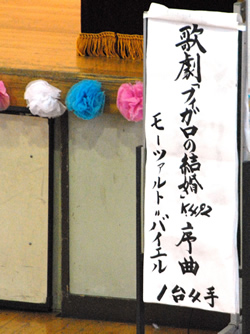 歌劇「フィガロの結婚」K.492 序曲
モーツァルト=バイエル
1台4手